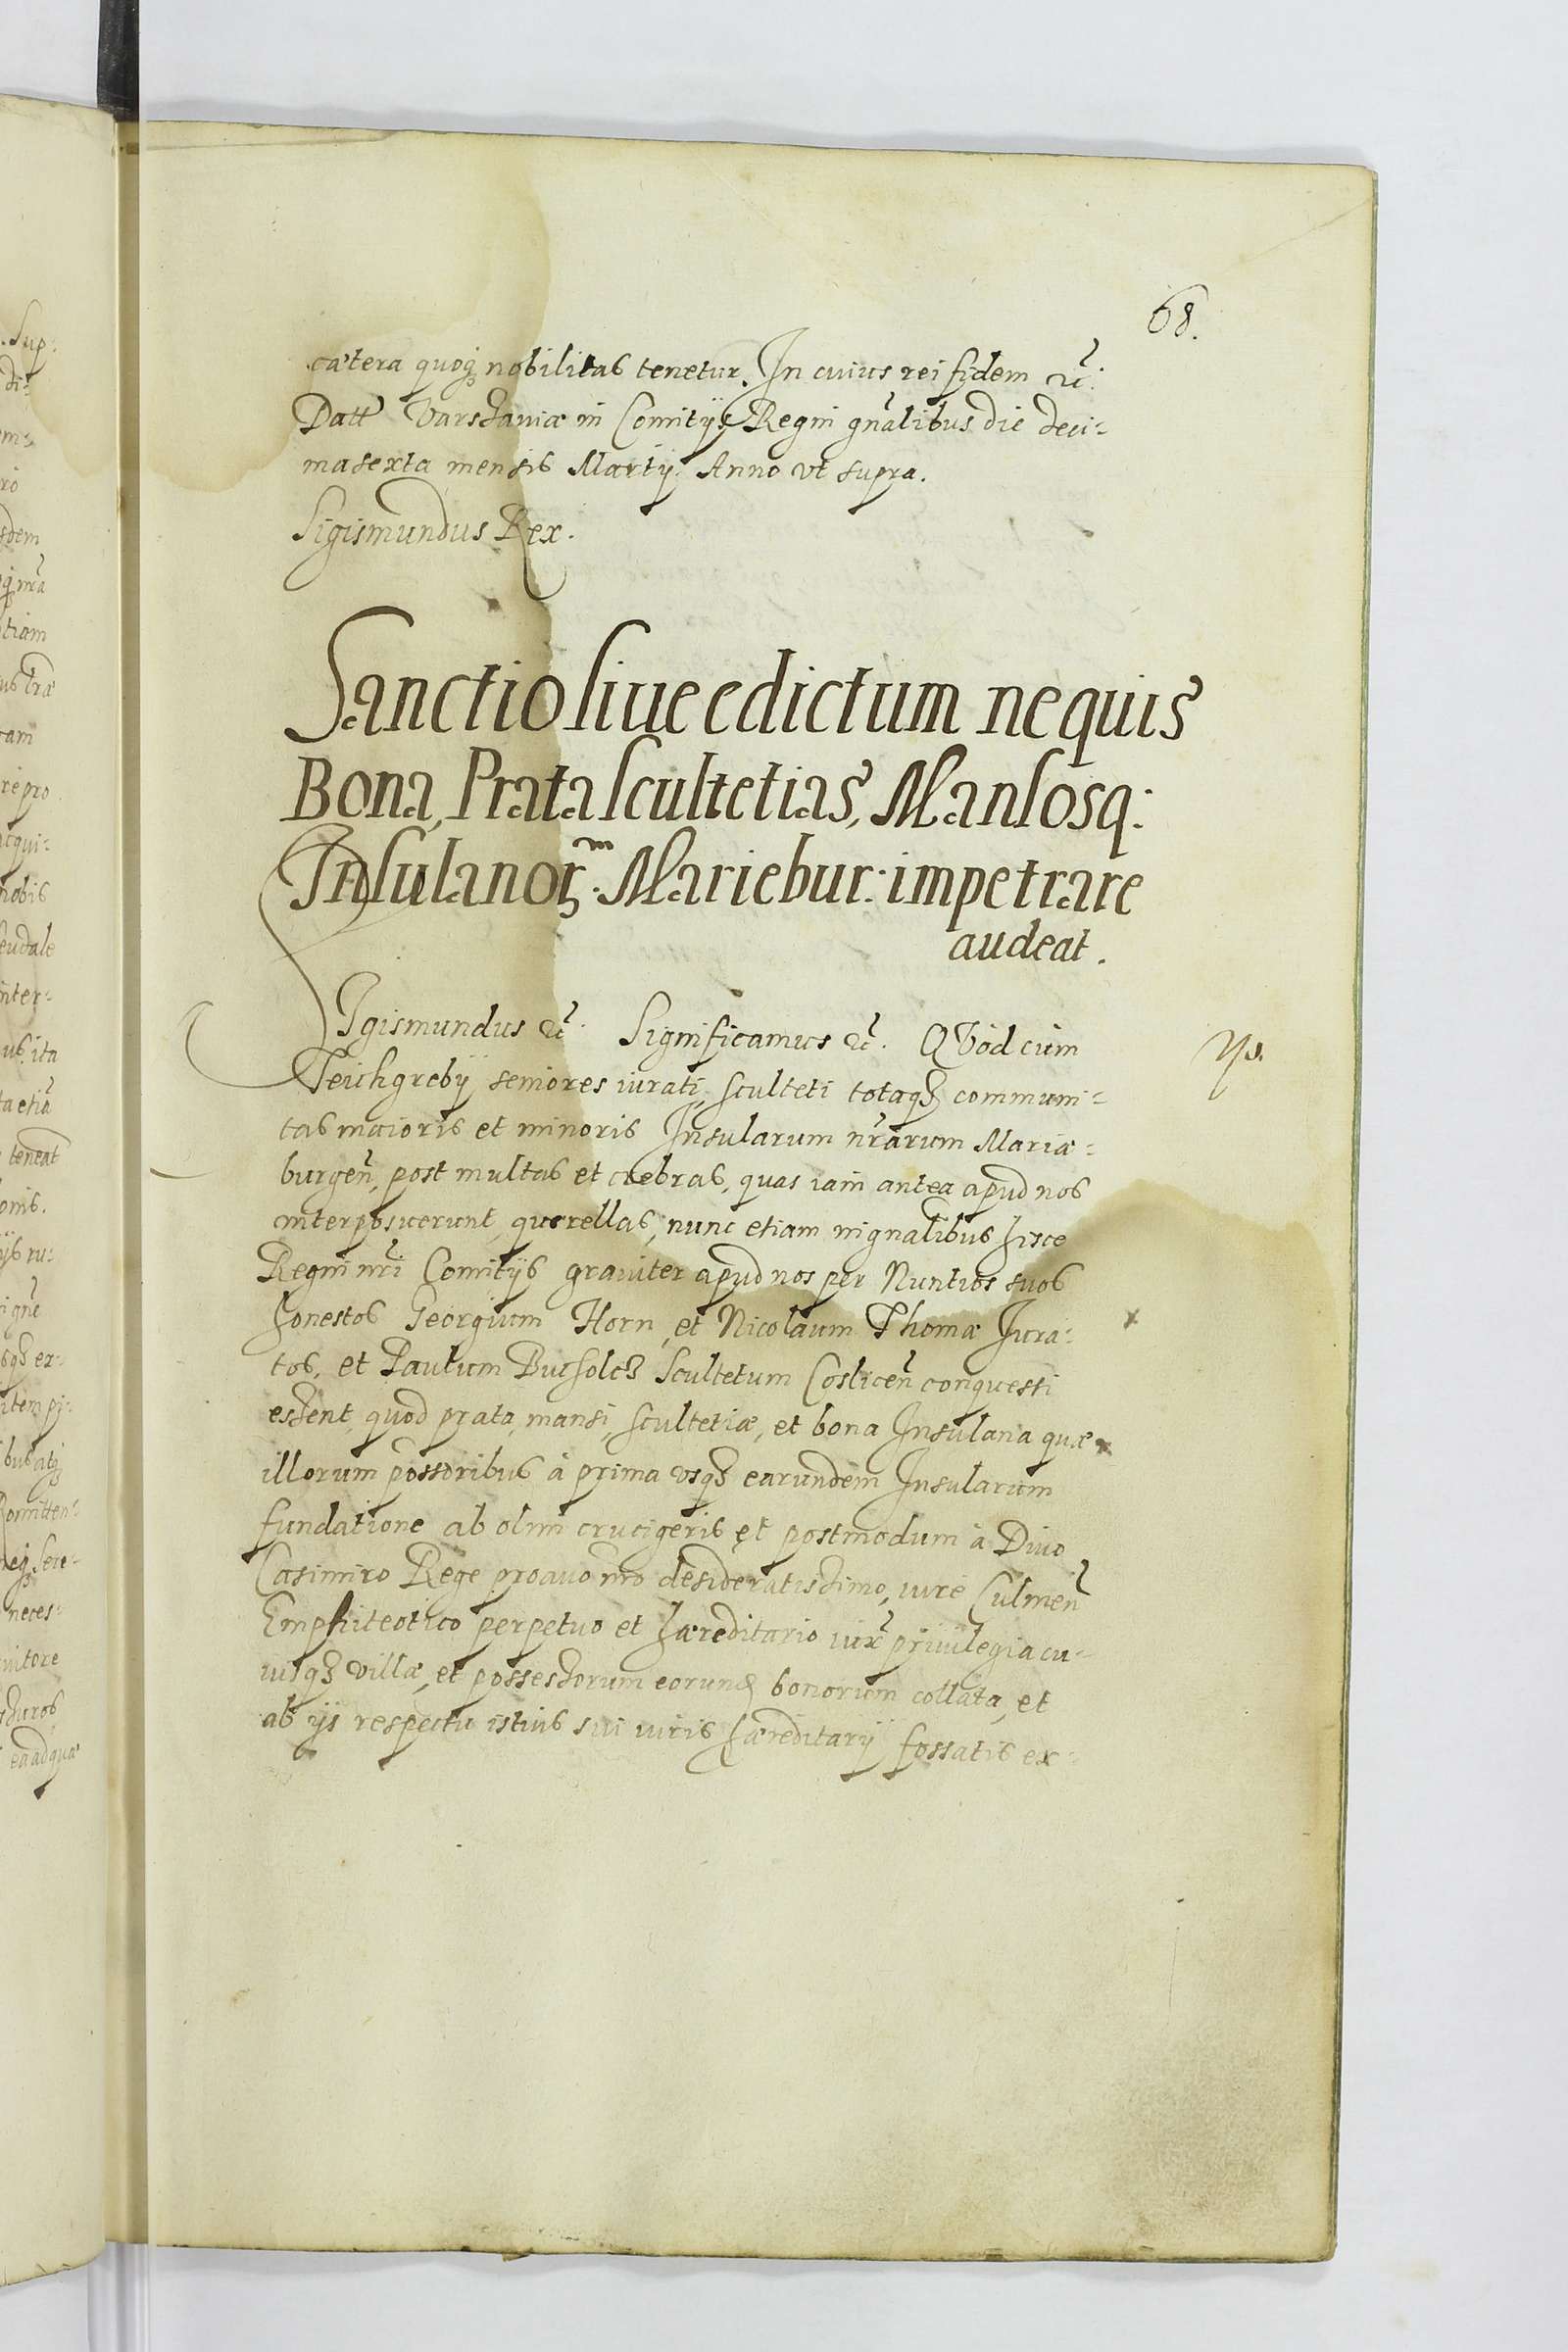 68.
cætera quoq nobilitas tenetur. In cuius rei fidem ꝛc̃:
Datt Varschaviæ in Comitijs Regni gñalibus die deci-
ma sexta mensis Martij. Anno vt supra.
Sigismundus Rex.
Sanctio siue edictum ne quis
Bona, Prata Scultetias, Mansosq:
Insulanoꝝm. Mariebur: impetrare
audeat.
SIgismundus ꝛc̃. Significamus ꝛc̃. QVod cum
Teichgrebij seniores iurati, sculteti totaqꝫ communi-
tas maioris et minoris Insularum nr̃arum Mariæ-
burgeñ, post multas et crebras, quas iam antea apud nos
interposuerunt querellas, nunc etiam in gnalibus hisce
Regni nr̃i Comitijs grauiter apud nos per Nuntios suos
honestos Georgium Horn, et Nicolaum Thomæ Jura-
tos, et Paulum Bucholcz Scultetum Cosliceñ conquesti
essent, quod prata, mansi, scultetiæ, et bona Insulana quæ
illorum possoribus à prima vsqꝫ earundem Insularum
fundatione ab olim crucigeris et postmodum à Diuo
Casimiro Rege proauo nr̃o desideratissimo, iure Culmeñ
Emphiteotico perpetuo et hæreditario iux̃ priuilegia cu-
iusqꝫ villæ, et possessorum eorund bonorum collata, et
ab ijs respectu istius sui iuris hæreditarij fossatis ex-
Sup.
di-
ro
sdem
tiam
re pro
acqui-
nobis
feudale
inter-
us. ita
ta etiã
teneat
onis.
itempj-
neq Sere-
neces-
nitore
ea ad quæ